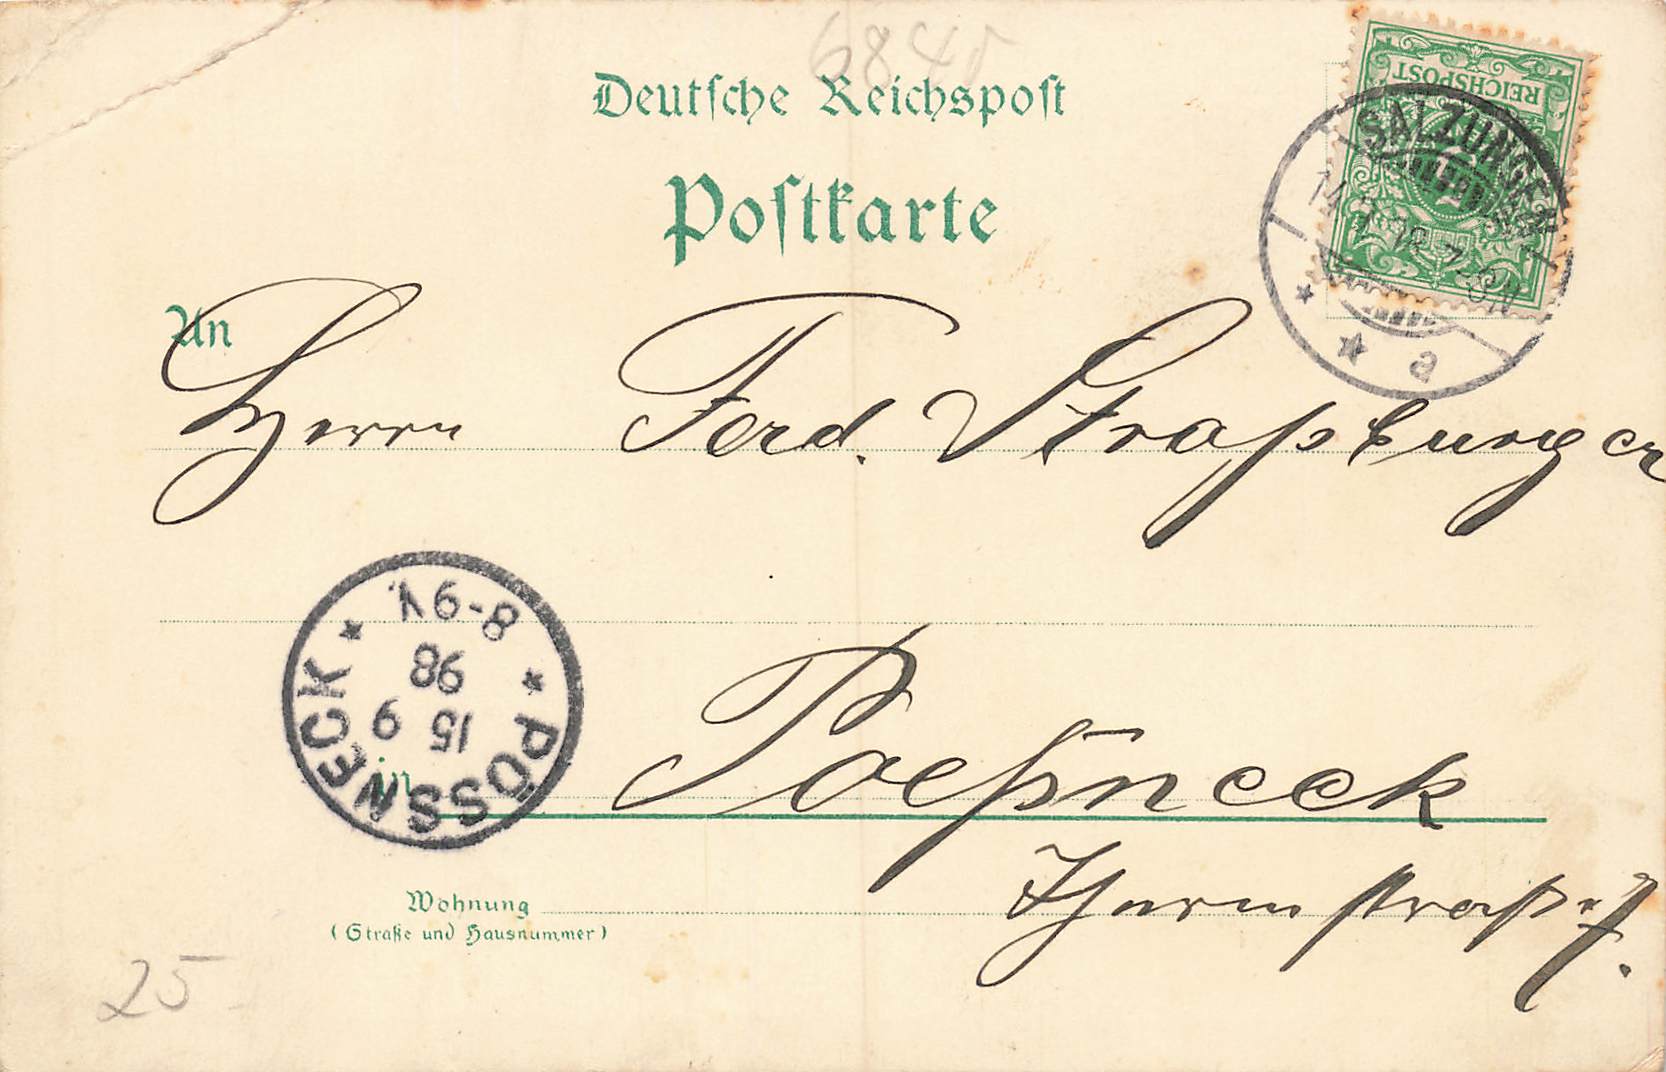 6845
Deutsche Reichspost
Postkarte
REICHSPOST
SALZUNGEN
a
An
Herrn Ferd. Straßburger
8-9V.
98
15 9
PÖSSNECK
in Poeßneck
Wohnung
(Straße und Hausnummer)
25